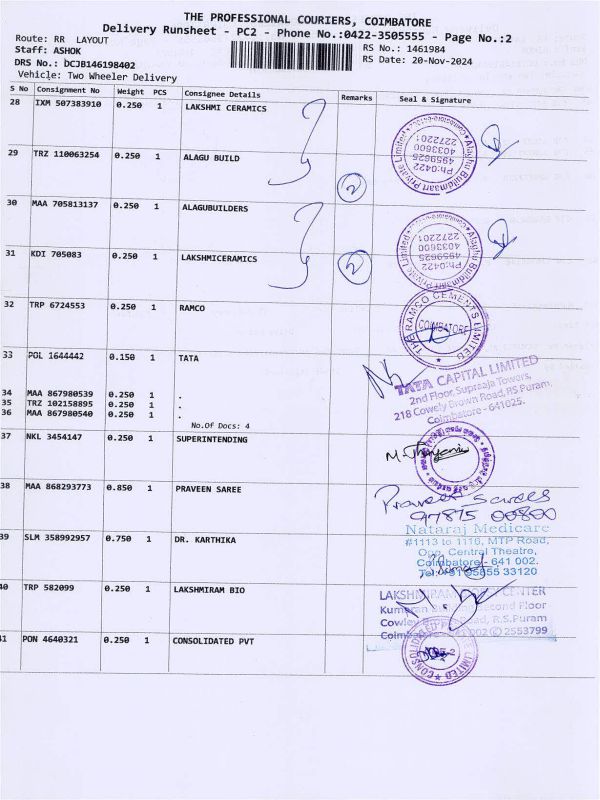 THE PROFESSIONAL COURIERS, COIMBATORE
Delivery Runsheet - PC2 - Phone No.:0422-3505555 - Page No.:2
Route: RR LAYOUT
RS No.: 1461984
Staff: ASHOK
RS Date: 20-Nov-2024
DRS No.: bCJB146198402
Vehicle: Two Wheeler Delivery
S No Consignment No Weight PCS Consignee Details Remarks Seal & Signature
28 IXM 507383910 0.250 1 LAKSHMI CERAMICS
29 TRZ 110063254 0.250 1 ALAGU BUILD
2
Alaghu Buildmaart Private Limited
Ph:0422
4959625
4033600
2272201
30 MAA 705813137 0.250 1 ALAGUBUILDERS
31 KDI 705083 0.250 1 LAKSHMICERAMICS
2
Alaghu Buildmaart Private Limited
Ph:0422
4959625
4033600
2272201
32 TRP 6724553 0.250 1 RAMCO
THE RAMCO CEMENTS LIMITED
COIMBATORE
33 POL 1644442 0.150 1 TATA
TATA CAPITAL LIMITED
2nd Floor, Supraaja Towers,
218 Cowely Brown Road, RS Puram,
Coimbatore - 641025.
34 MAA 867980539 0.250 1 .
35 TRZ 102158895 0.250 1 .
36 MAA 867980540 0.250 1 .
No.Of Docs: 4
37 NKL 3454147 0.250 1 SUPERINTENDING
38 MAA 868293773 0.850 1 PRAVEEN SAREE
Praveen Sarees
97875 00800
39 SLM 358992957 0.750 1 DR. KARTHIKA
Nataraj Medicare
#1113 to 1116, MTP Road,
Opp. Central Theatre,
Coimbatore - 641 002.
40 TRP 582099 0.250 1 LAKSHMIRAM BIO
LAKSHMIRAM CENTER
Second Floor
Road, R.S.Puram
002 2553799
41 PON 4640321 0.250 1 CONSOLIDATED PVT
CONSOLIDATED LIMITED